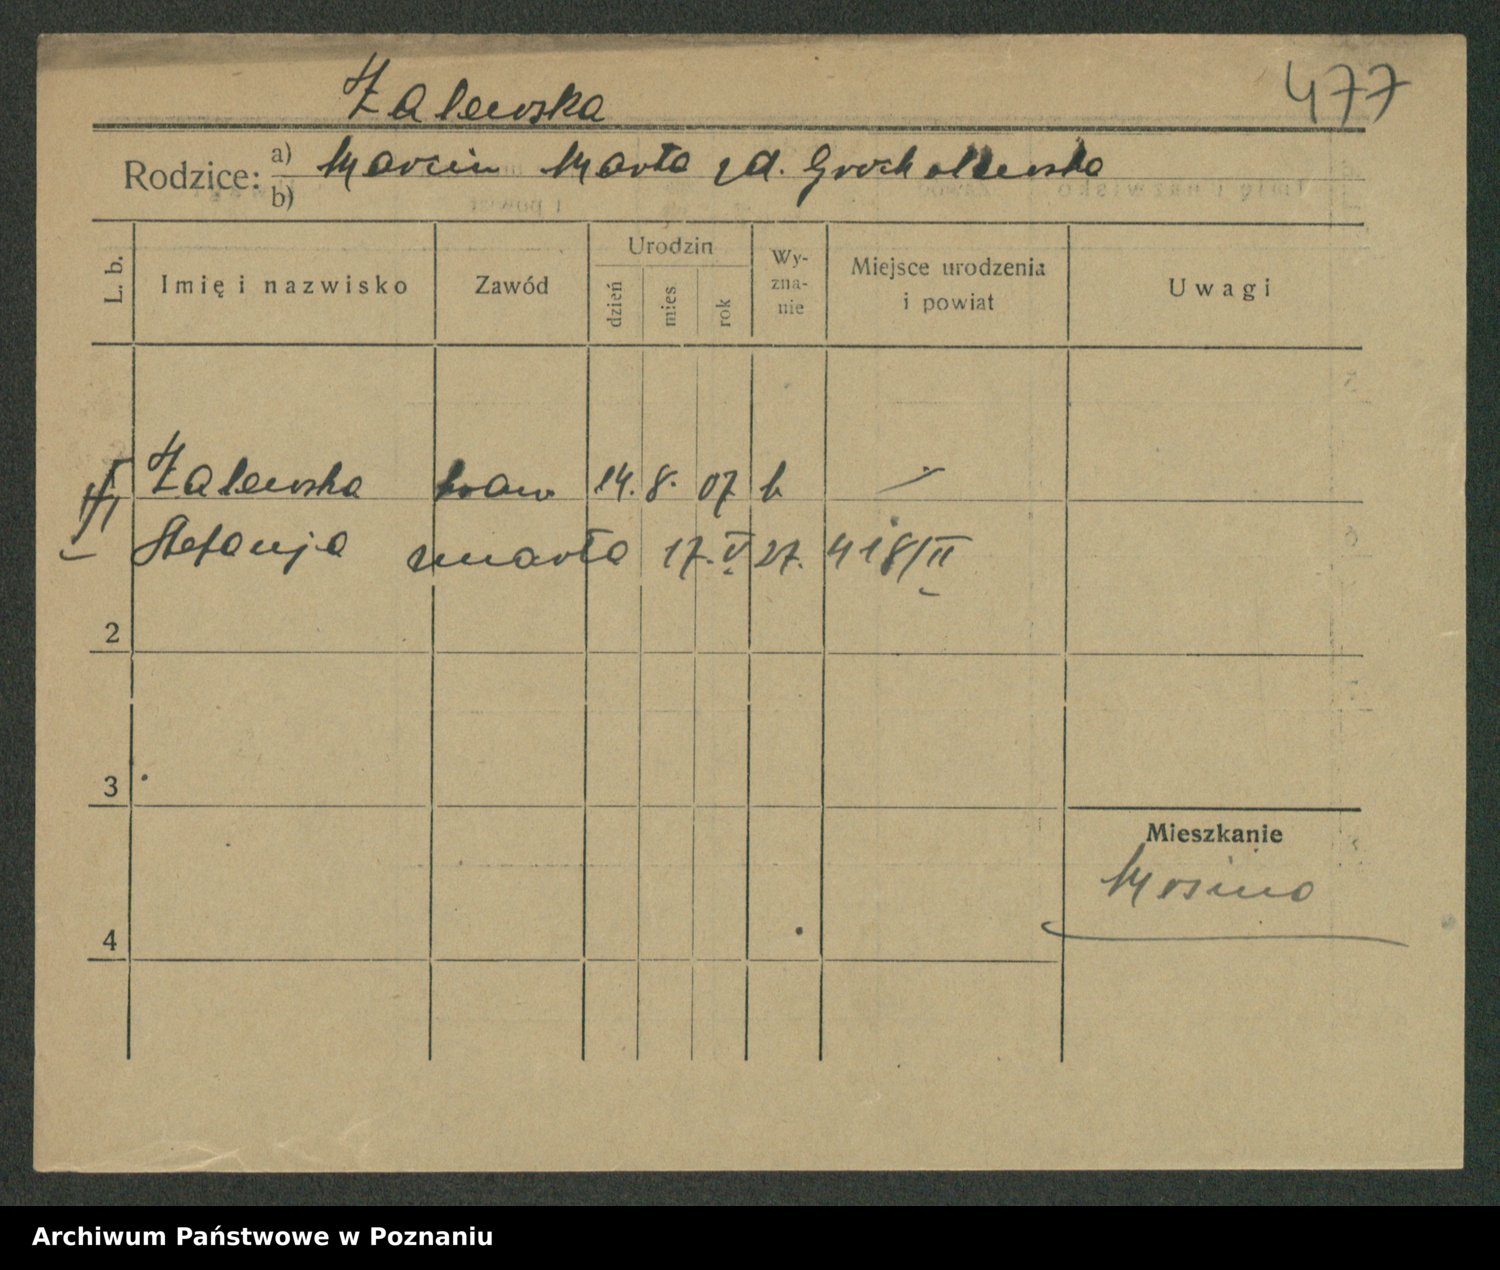 Zalewska 477
Rodzice: a) Marcin Marta zd. Grocholewska
b)
L. b. Imię i nazwisko Zawód Urodzin dzień mies rok Wy-zna-nie Miejsce urodzenia i powiat Uwagi
Zalewska 14. 8. 07 k
Stefanja zmarła 17. V 27. 418/II
2
3
Mieszkanie
Mosina
4
Archiwum Państwowe w Poznaniu